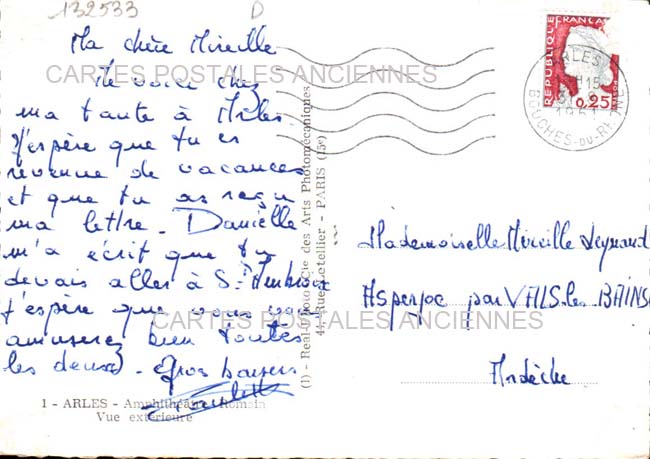 132533
D
Ma chère Mireille
Me voici chez
ma tante à Arles.
J'espère que tu es
revenue de vacances
et que tu as reçu
ma lettre. Danielle
m'a écrit que tu
devais aller à St Ambroix
J'espère que vous vous
amuserez bien toutes
les deux. Gros baisers
1 - ARLES - Amphithéâtre Romain
Vue extérieure
(1) - Real-Photo Cie des Arts Photomécaniques
44, Rue Letellier - PARIS (15e)
REPUBLIQUE FRANÇAISE
0,25
ARLES
BOUCHES-DU-RHONE
Mademoiselle Mireille
Asperjoc par VALS-les-BAINS
Ardèche
CARTES POSTALES ANCIENNES
CARTES POSTALES ANCIENNES